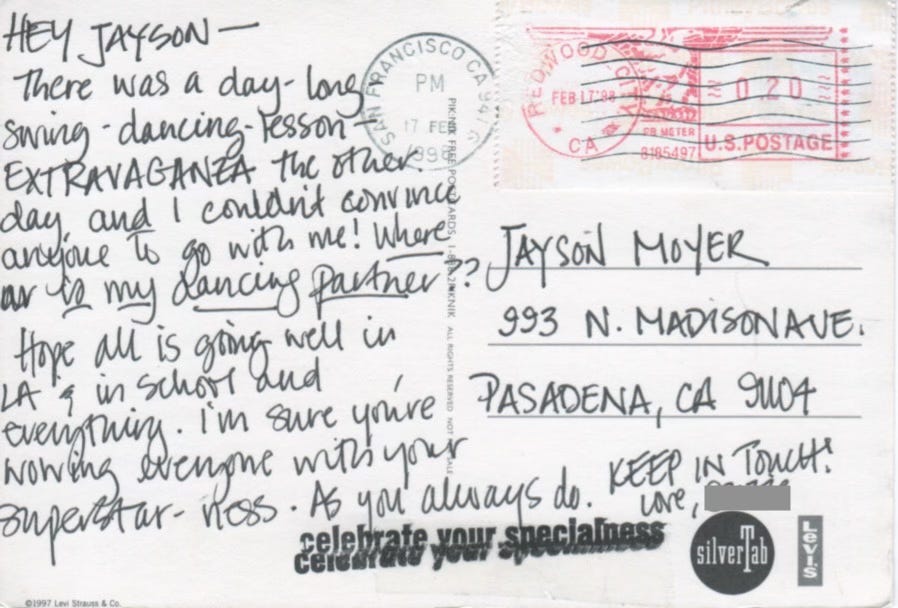 HEY JAYSON—
There was a day-long
swing-dancing-lesson-
EXTRAVAGANZA the other
day, and I couldn't convince
anyone to go with me! Where
is my dancing partner??
Hope all is going well in
LA & in school and
everything. I'm sure you're
wowing everyone with your
superstar-ness. As you always do.
KEEP IN TOUCH!
Love,
SAN FRANCISCO CA 941
PM
17 FEB
1998
REDWOOD CITY
FEB 17'98
CA
020
PB METER
8185497
U.S. POSTAGE
PIKNIK FREE POSTCARDS, ALL RIGHTS RESERVED NOT
JAYSON MOYER
993 N. MADISON AVE.
PASADENA, CA 91104
celebrate your specialness
celebrate your specialness
silverTab
Levi's
©1997 Levi Strauss & Co.